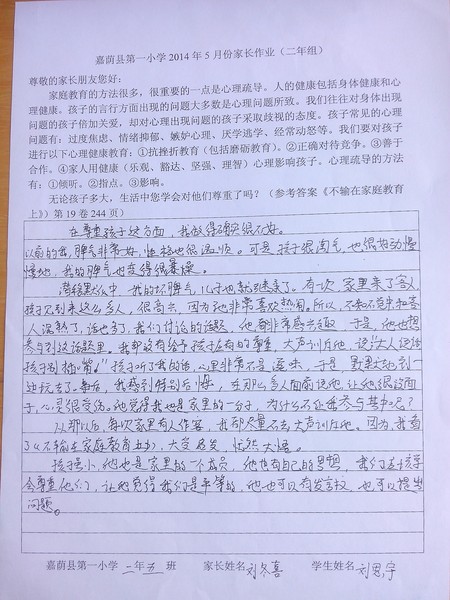 嘉荫县第一小学2014年5月份家长作业（二年组）
尊敬的家长朋友您好：
家庭教育的方法很多，很重要的一点是心理疏导。人的健康包括身体健康和心
理健康。孩子的言行方面出现的问题大多数是心理问题所致。我们往往对身体出现
问题的孩子倍加关爱，却对心理出现问题的孩子采取歧视的态度。孩子常见的心理
问题有：过度焦虑、情绪抑郁、嫉妒心理、厌学逃学、经常动怒等。我们要对孩子
进行以下心理健康教育：①抗挫折教育（包括磨砺教育）。②正确对待竞争。③善于
合作。④家人用健康（乐观、豁达、坚强、理智）心理影响孩子。心理疏导的方法
有：①倾听。②指点。③影响。
无论孩子多大，生活中您学会对他们尊重了吗？（参考答案《不输在家庭教育
上》）第19卷244页）
在尊重孩子这方面，我做得确实很不好。
以前的我，脾气非常好，性格也很温顺。可是，孩子很淘气，也很好动，慢
慢地，我的脾气也变得很暴燥。
潜移默化中，我的坏脾气，儿子也就遗传了。有一次，家里来了客人，
孩子见到来这么多人，很高兴，因为他非常喜欢热闹。所以，不知不觉中和客
人混熟了，话也多了，我们讨论的话题，他都非常感兴趣，于是，他也想
参与到这话题里。我却没有给予孩子应有的尊重，大声训斥他，说"大人说话
孩子别插嘴。"孩子听了我的话，心里非常不是滋味，于是，默默地到一
边玩去了。事后，我感到特别后悔，在那么多人面前说他，让他很没面
子，心灵很受伤。他觉得我也是家里的一份子，为什么不让我参与其中呢？
从那以后，每次家里有人作客，我都尽量不去大声训斥他。因为，我看
了《不输在家庭教育上》，大受启发，恍然大悟。
孩子虽小，他也是家里的一个成员，他也有自己的思想，我们应该学
会尊重他们，让他觉得我们是平等的，他也可以有发言权，也可以提出
问题。
嘉荫县第一小学 二年五 班 家长姓名 刘冬喜 学生姓名 刘思宇